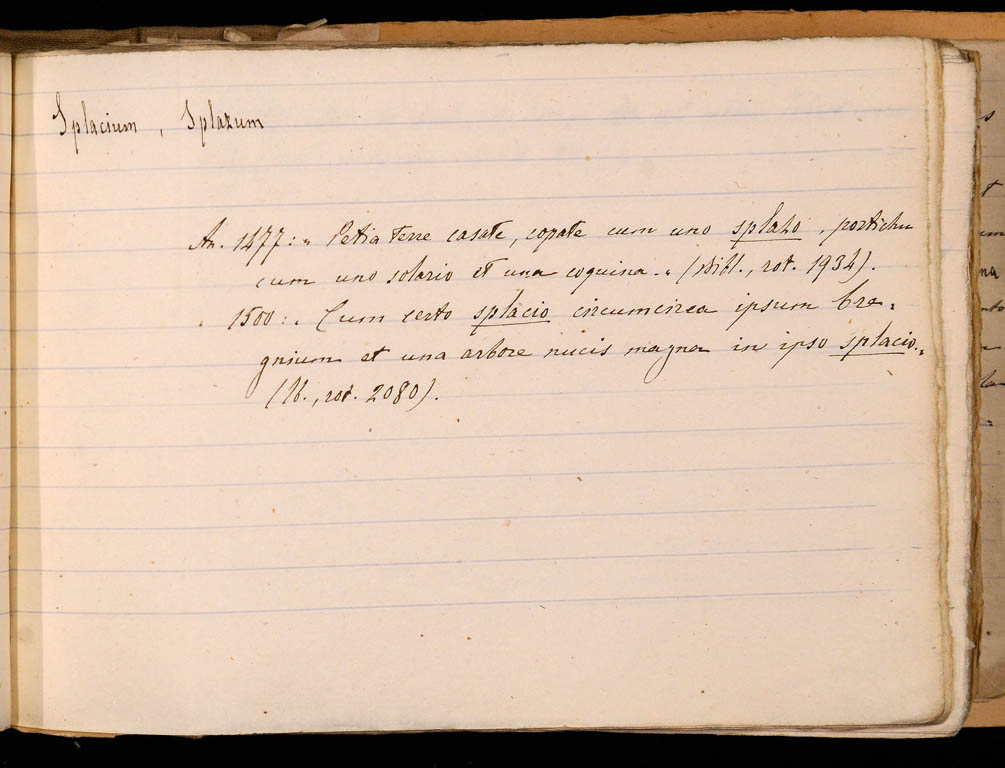 Splacium, Splazum
An. 1477: „ Petia terre casate, copate cum uno splazo, portichu
cum uno solario et una coquina. „ (Bibl., rot. 1934).
„ 1500: „ Cum certo splacio circumcirca ipsum bre-
gnium et una arbore nucis magna in ipso splacio. „
(Ib., rot. 2080).